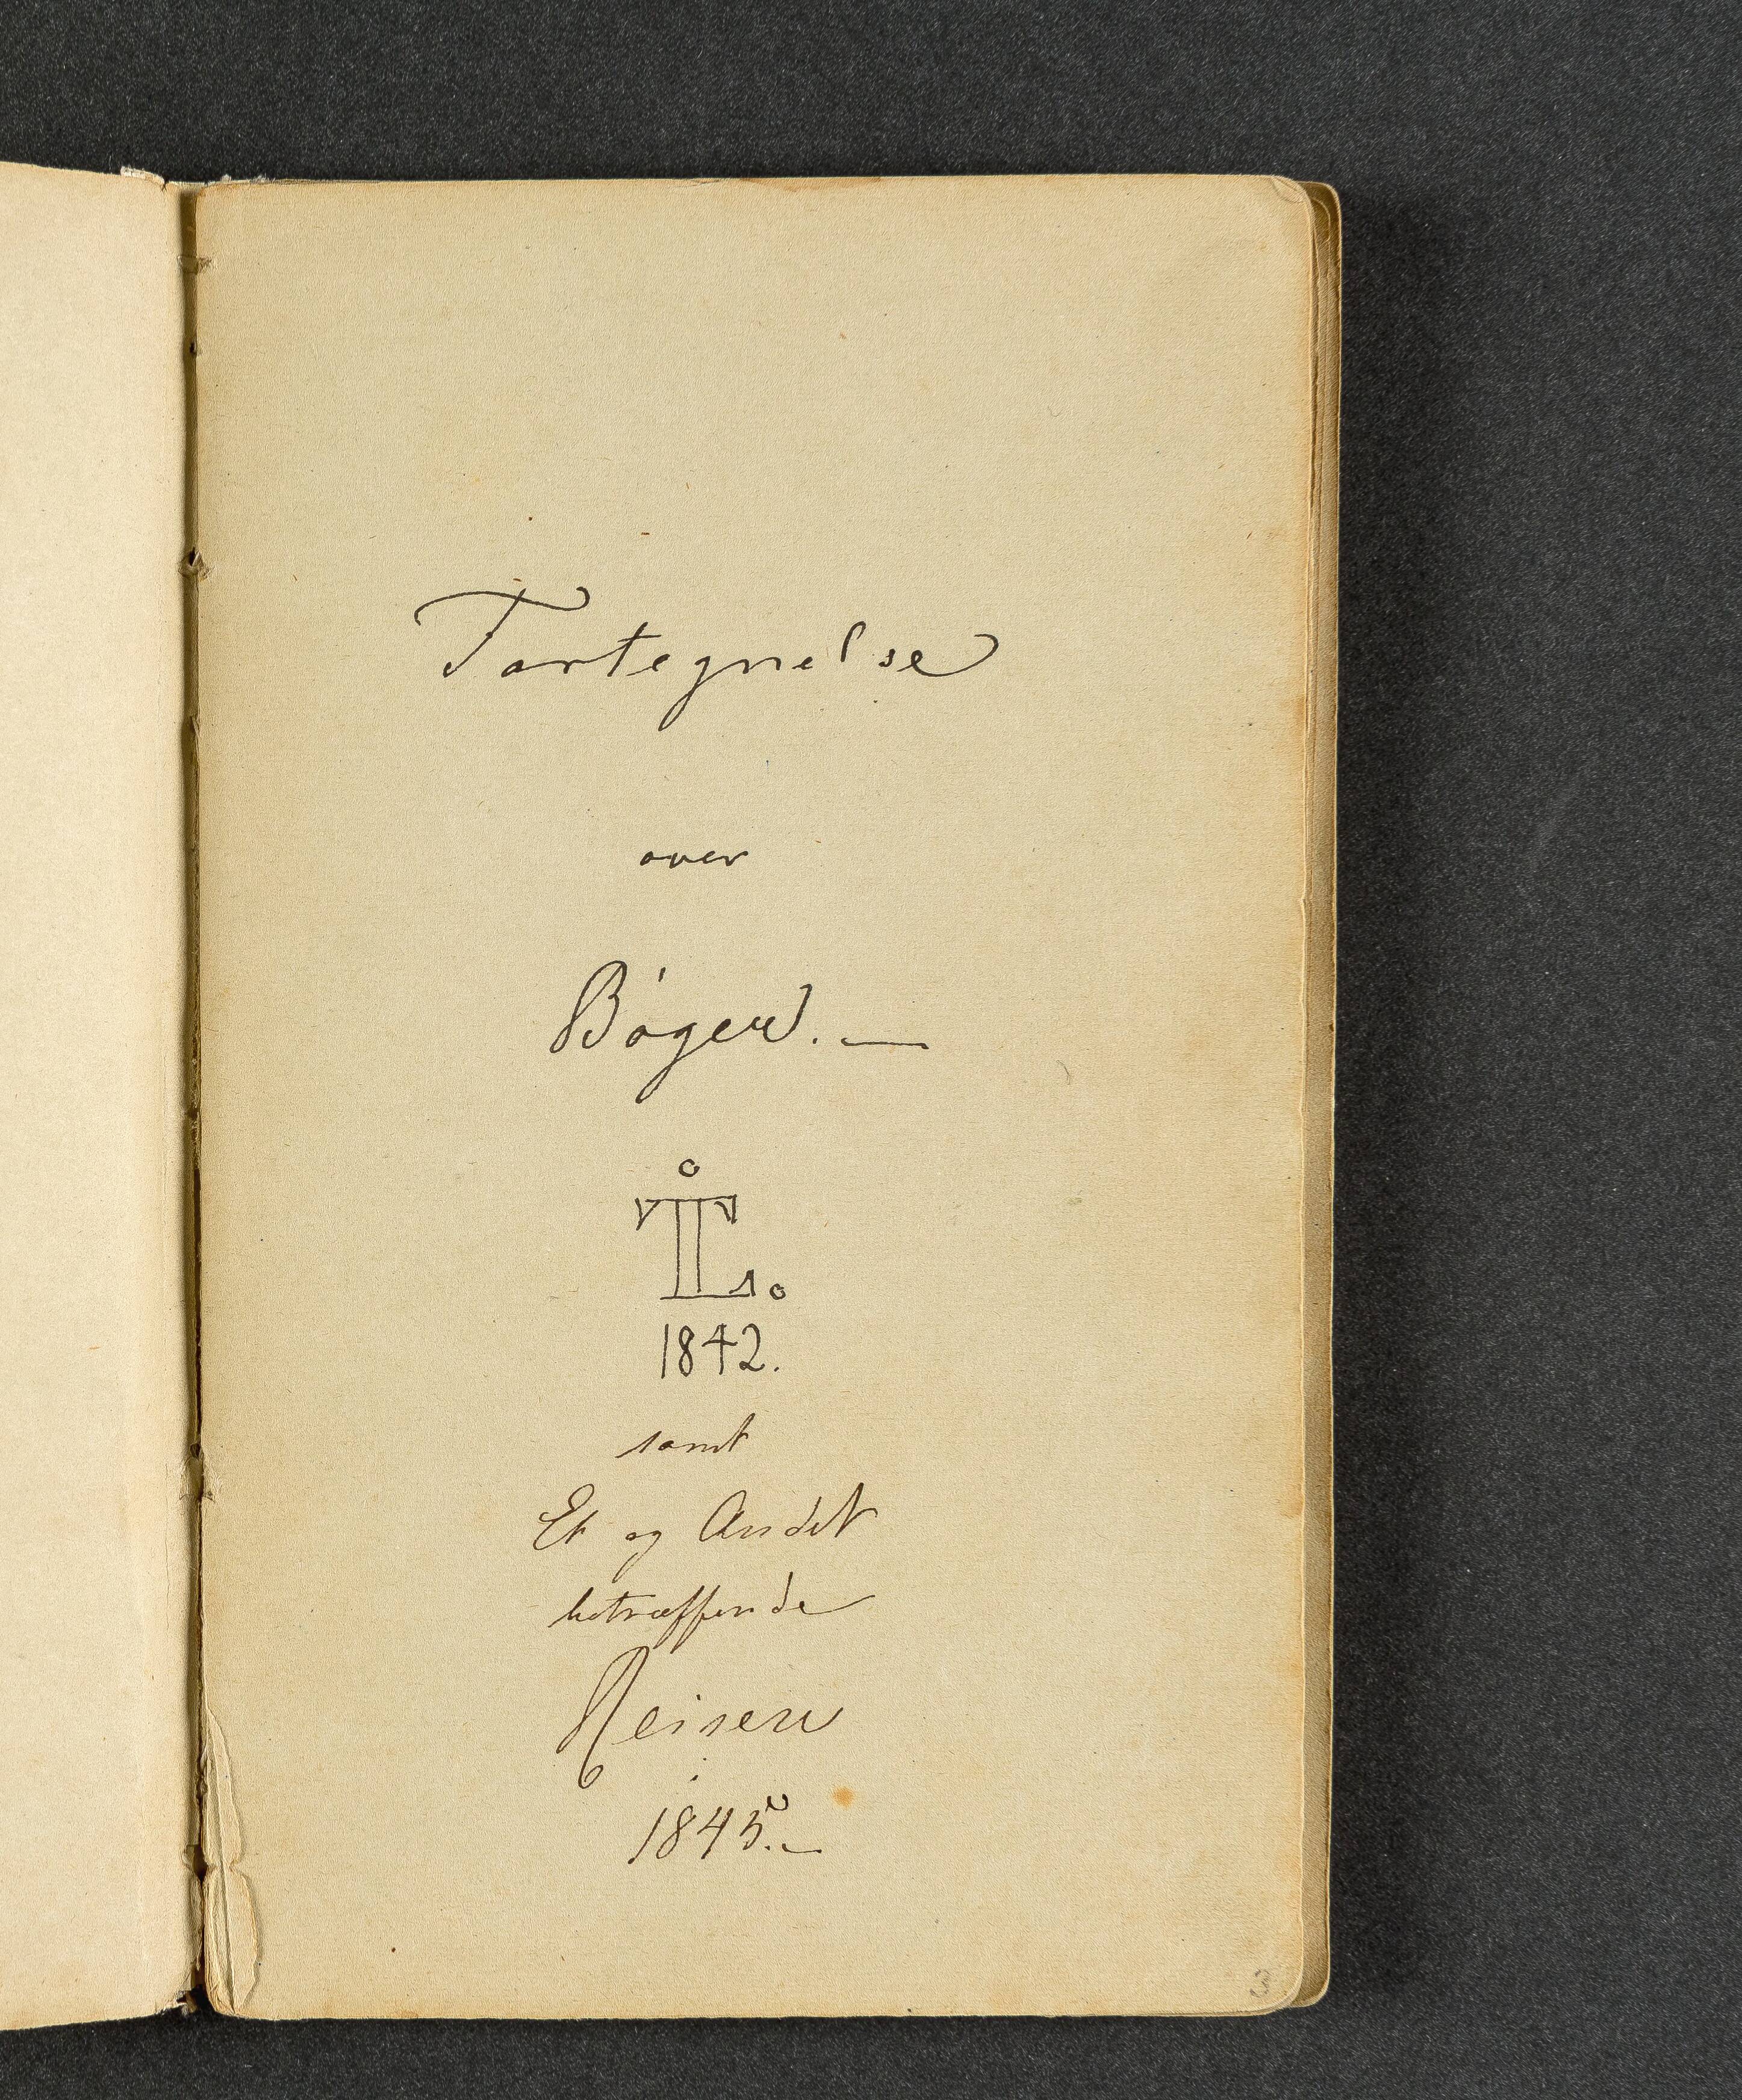 Fortegnelse
over
Bøger. —
T̊L.
1842.
samt
Et og Andet
betræffende
Reisen
1845. —
3